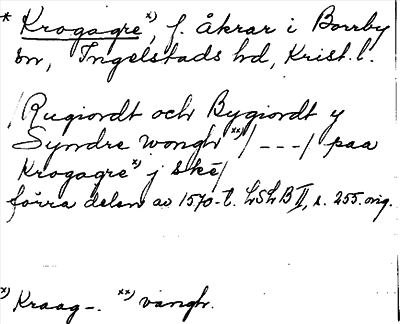 * Krogagre x), f. åkrar i Borrby
sn, Ingelstads hd, Krist. l.
/Rugiordt och Bygiordt y
Syndre wongh xx)/ --- / paa
Krogagre x) j ske/
förra delen av 1570-t. LSLB II, s. 255. orig.
x) Kraag-. xx) vangh.